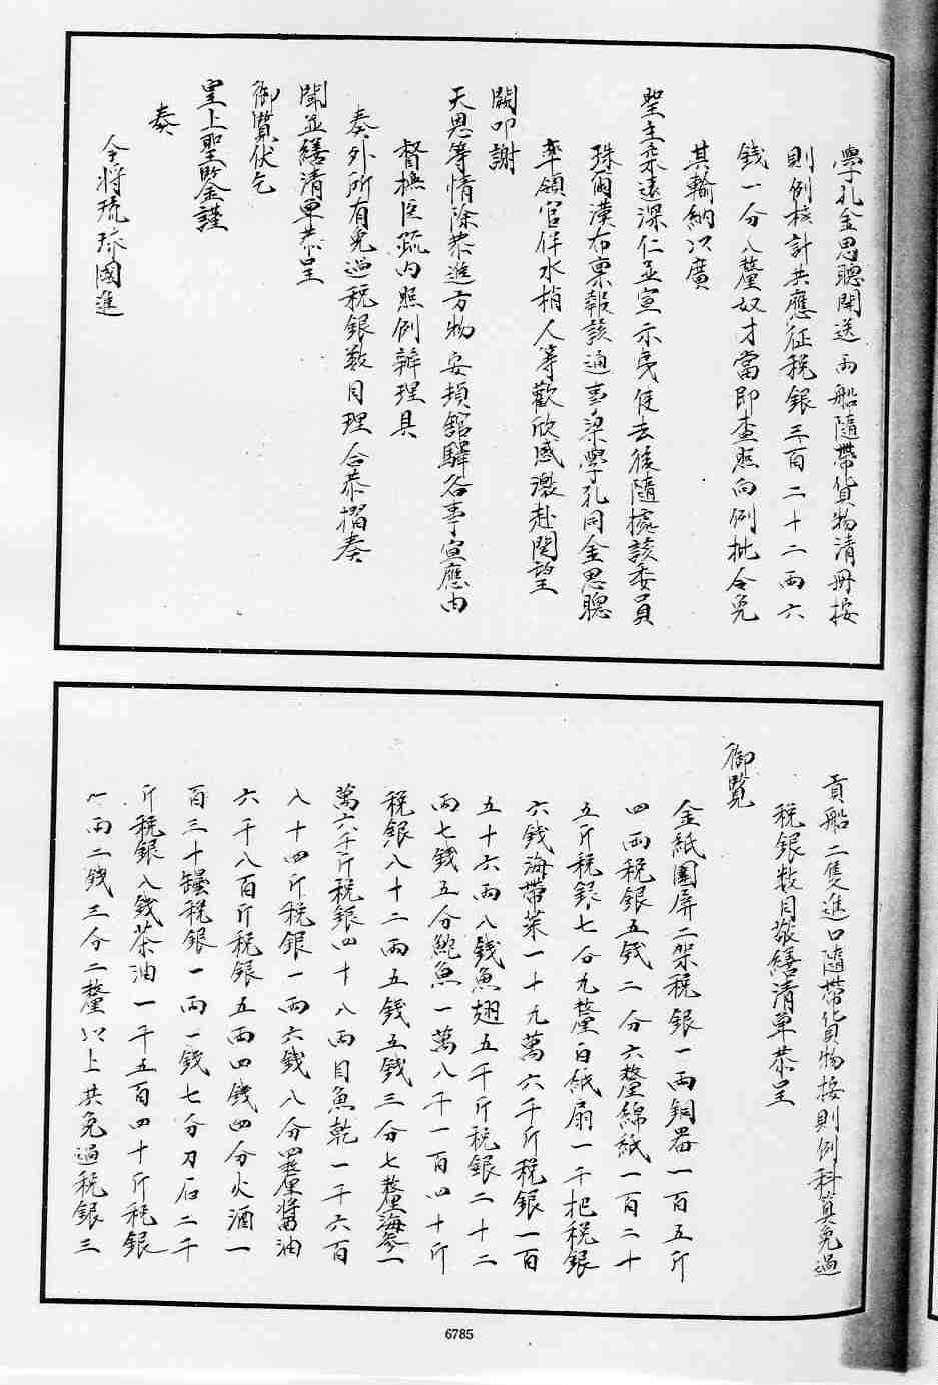 學孔金思聰開送兩船隨帶貨物清冊按
則例核計共應征稅銀三百二十二兩六
錢一分八釐奴才當即查照向例批令免
其輸納以廣
聖主柔遠深仁並宣示夷使去後隨據該委員
珠爾漢布稟報該通事梁學孔同金思聰
率領官伴水梢人等歡欣感激赴関望
闕叩謝
天恩等情除恭進方物安頓館驛各事宜應由
督撫臣疏內照例辦理具
奏外所有免過稅銀數目理合恭摺奏
聞並繕清單恭呈
御覽伏乞
皇上聖鑒謹
奏
今將琉球國進
貢船二隻進口隨帶貨物按則例科算免過
稅銀數目敬繕清單恭呈
御覽
金紙圍屏二架稅銀一兩銅器一百五斤
四兩稅銀五錢二分六釐綿紙一百二十
五斤稅銀七分九釐白紙扇一千把稅銀
六錢海帶菜一十九萬六千斤稅銀一百
五十六兩八錢魚翅五千斤稅銀二十二
兩七錢五分鮑魚一萬八千一百四十斤
稅銀八十二兩五錢五錢三分七釐海參一
萬六千斤稅銀四十八兩目魚乾一千六百
八十四斤稅銀一兩六錢八分四釐醬油
六千八百斤稅銀五兩四錢四分火酒一
百三十罎稅銀一兩一錢七分刀石二千
斤稅銀八錢茶油一千五百四十斤稅銀
一兩二錢三分二釐以上共免過稅銀三
6785